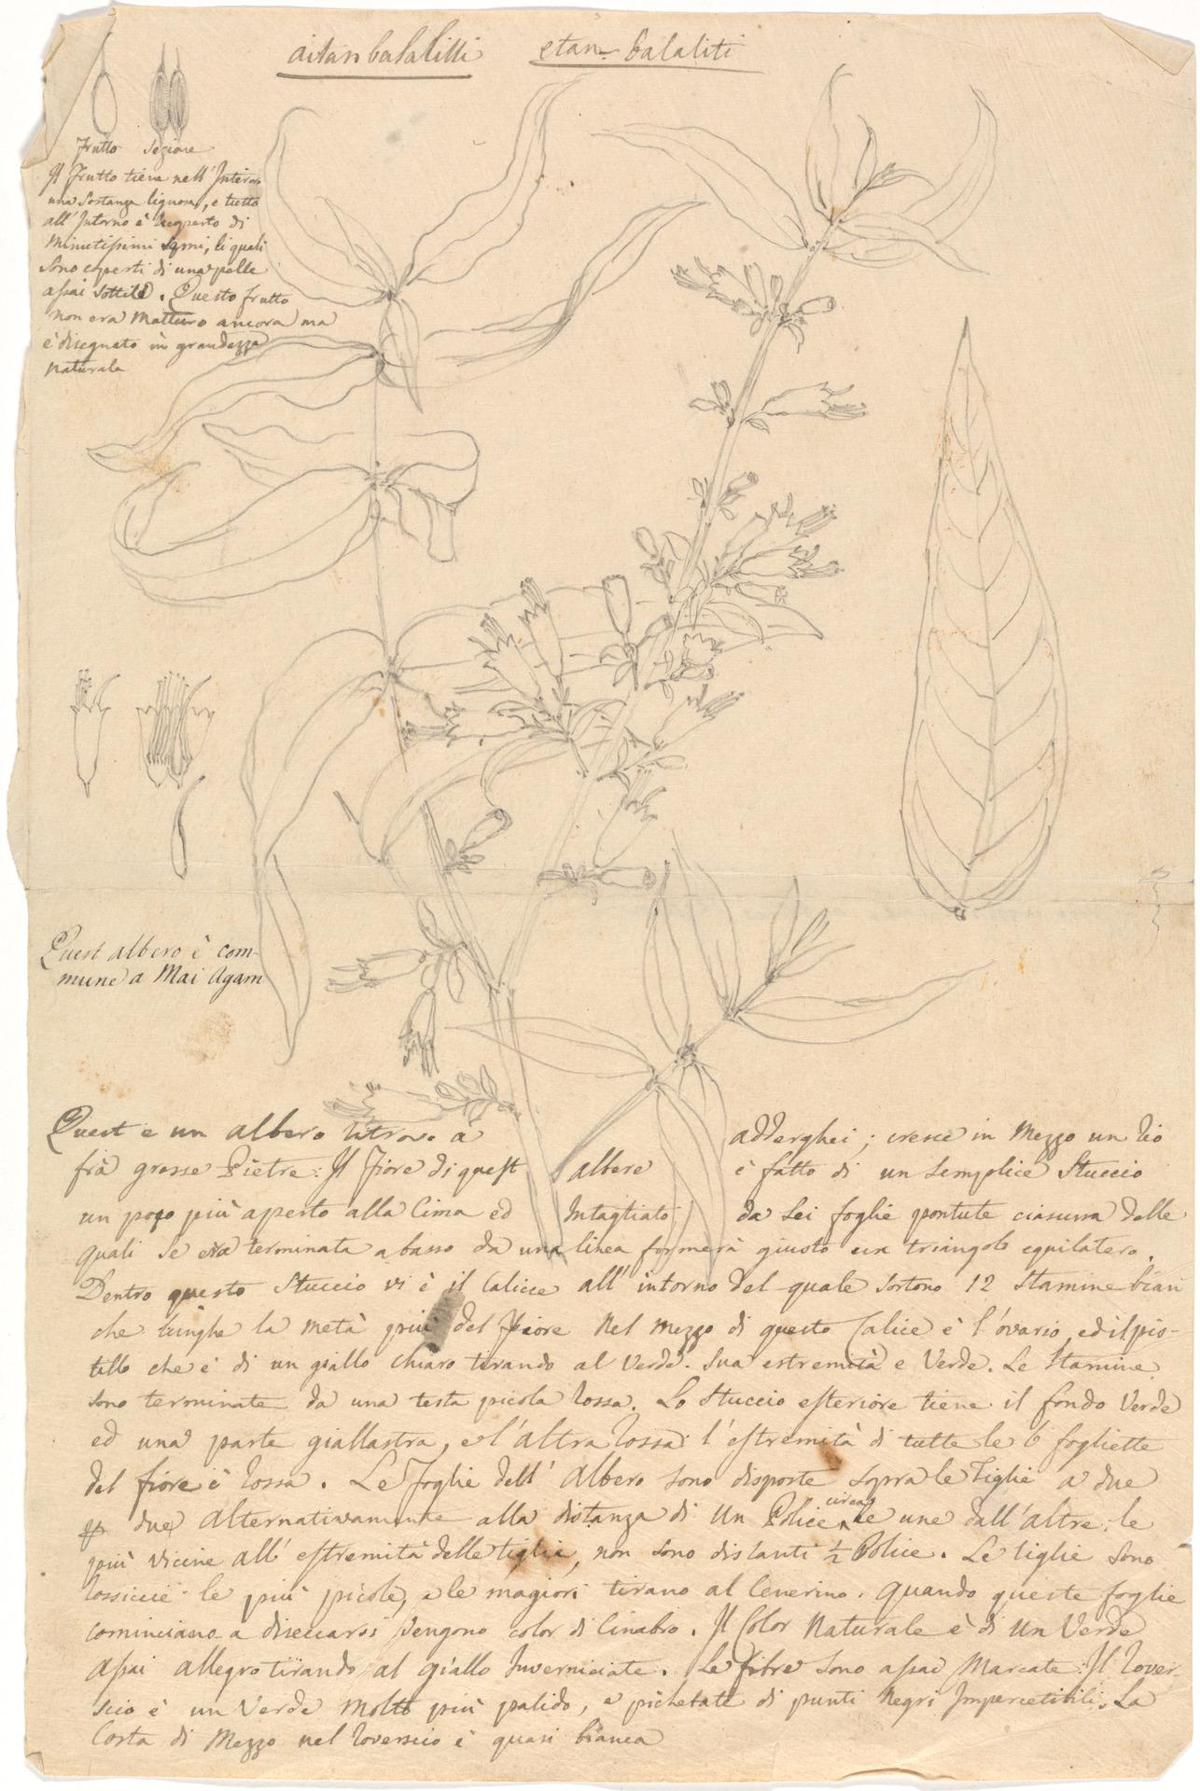 aitanbalalitti etan-balaliti
frutto Sezione
Il Frutto tiene nell'Interno
una Sostanza lignosa, e tutto
all'Intorno è Ricoperto di
Minutissimi Semi, li quali
sono coperti di una pelle
assai sottile. Questo frutto
non era Matturo ancora ma
è disegnato in grandezza
naturale
Quest albero è com-
mune a Mai Agam
Quest e un albero ritrov. a adderghei; cresce in Mezzo un Rio
frà grosse Pietre: Il Fiore di quest albero è fatto di un Semplice Stuccio
un poco più aperto alla Cima ed Intagliato da Sei foglie pontute ciascuna delle
quali se era terminata abasso da una linea formerà giusto un triangolo equilatero.
Dentro questo Stuccio vi è il Calicce all'intorno del quale Sortono 12 Stamine bian
che lunghe la metà più del Fiore Nel mezzo di questo Calice è l'ovario, ed il pis-
tillo che è di un giallo chiaro tirando al Verde. Sua estremità e Verde. Le Stamine
sono terminate da una testa picola Rossa. Lo Stuccio esteriore tiene il fondo Verde
ed una parte giallastra, e l'altra Rossa: l'estremità di tutte le 6 fogliette
del fiore è Rossa. Le Foglie dell'Albero sono disposte sopra le Tiglie a due
due alternativamente alla distanza di Un Police circa le une dall'altre: le
più vicine all'estremità delle tiglie, non sono distanti ½ Police. Le tiglie sono
Rossiccie le più picole, e le magiori tirano al Cenerino. quando queste foglie
cominciano a diseccarsi Vengono color di Cinabro. Il Color Naturale è di Un Verde
assai allegro tirando al giallo Inverniciate. Le fibre sono assai Marcate: Il Rover-
scio è un Verde Molto più palido, e pichetate di punti Negri Impercetibili. La
Costa di Mezzo nel Roverscio è quasi bianca